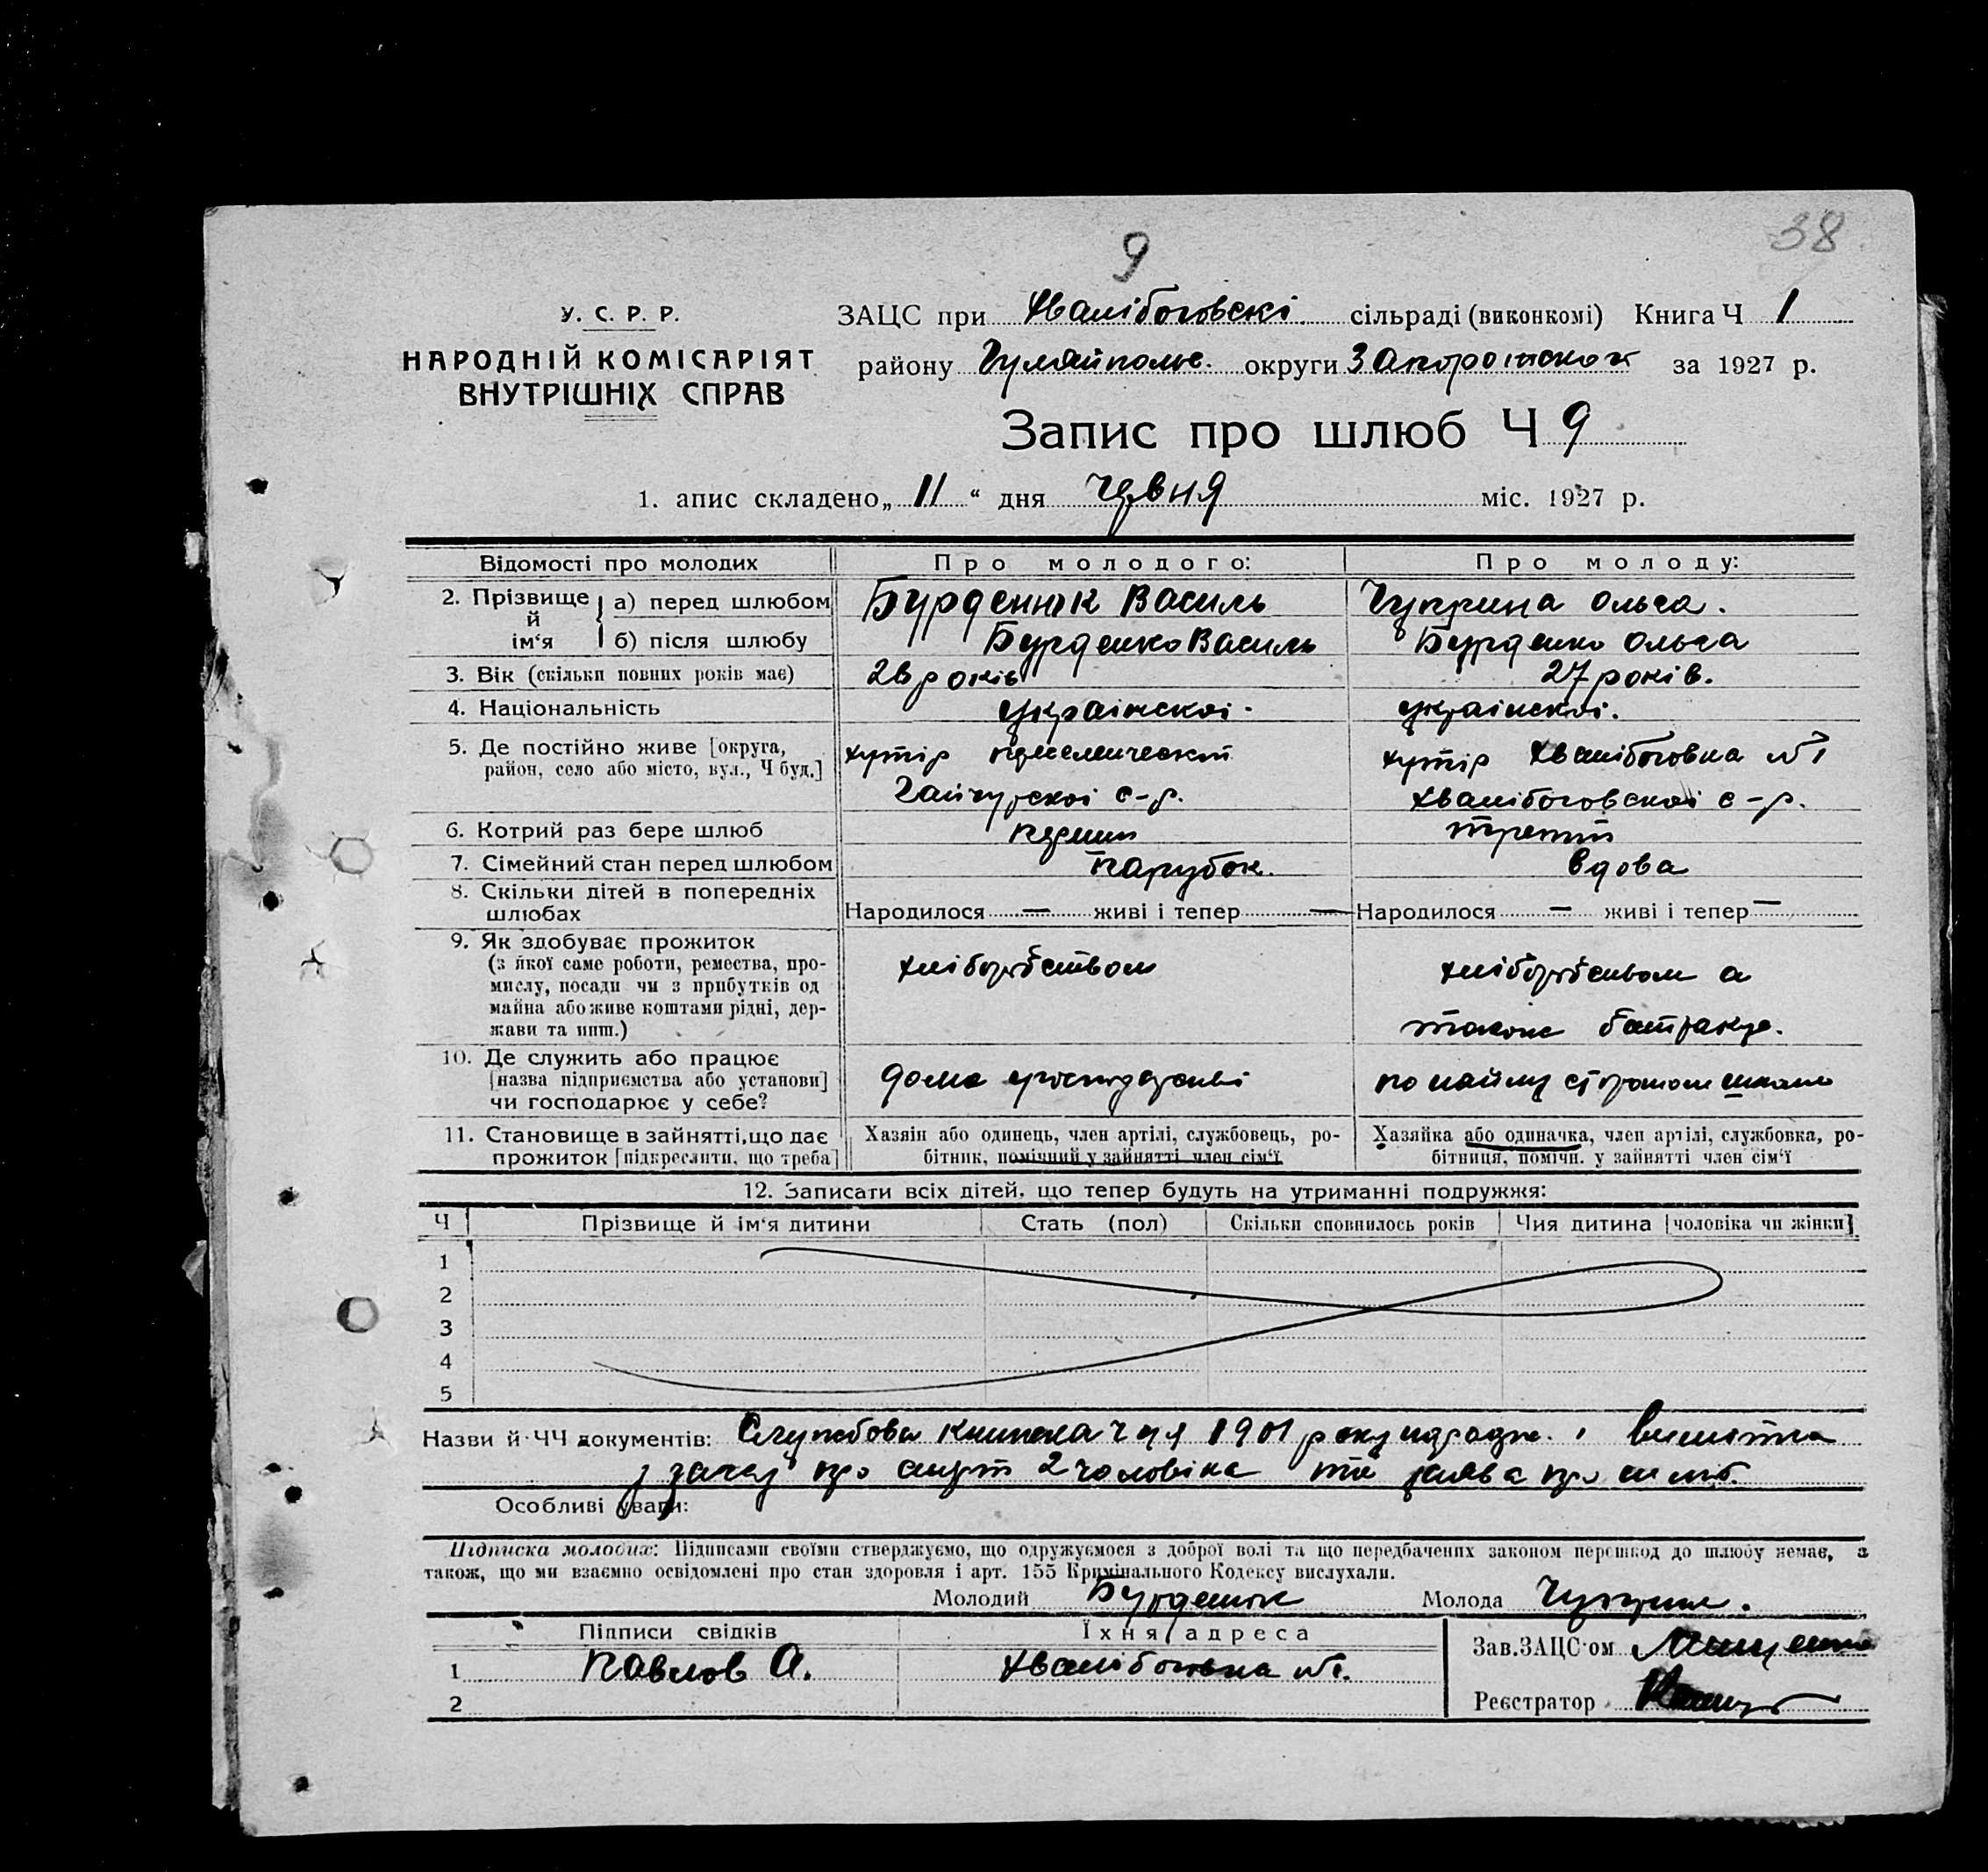 38
9
У. С. Р. Р.
НАРОДНІЙ КОМІСАРІЯТ
ВНУТРІШНІХ СПРАВ
ЗАЦС при Хвалібоговскі сільраді (виконкомі) Книга Ч 1
району Гуляйполье. округи Запорожской за 1927 р.
Запис про шлюб Ч 9
1. апис складено „11“ дня червня міс. 1927 р.
Відомості про молодих Про молодого: Про молоду:
2. Прізвище й ім‘я а) перед шлюбом Бурденюк Василь Чуприна Ольга.
б) після шлюбу Бурденко Василь Бурденко Ольга
3. Вік (скільки повних років має) 26 років 27 років.
4. Національність українскої. українскої.
5. Де постійно живе [округа, хутір хутір Хвалібоговка №1
район, село або місто, вул., Ч буд.] Гайчурскої с-р. Хвалібоговскої с-р.
6. Котрий раз бере шлюб перший третій
7. Сімейний стан перед шлюбом парубок. вдова
8. Скільки дітей в попередніх
шлюбах Народилося — живі і тепер — Народилося — живі і тепер —
9. Як здобуває прожиток
(з якої саме роботи, ремества, про- хліборобством хліборобством а
мислу, посади чи з прибутків од
майна або живе коштами рідні, дер- також батракує.
жави та инш.)
10. Де служить або працює
[назва підприємства або установи] дома по найму
чи господарює у себе?
11. Становище в зайнятті, що дає Хазяін або одинець, член артілі, службовець, ро- Хазяйка або одиначка, член артілі, службовка, ро-
прожиток [підкреслити, що треба] бітник, помічний у зайнятті член сім‘ї бітниця, помічн. у зайнятті член сім‘ї
12. Записати всіх дітей, що тепер будуть на утриманні подружжя:
Ч Прізвище й ім‘я дитини Стать (пол) Скільки сповнилось років Чия дитина [чоловіка чи жінки]
1
2
3
4
5
Назви й ЧЧ документів: Службова книжка 1901 року і
про смерт 2 чоловіка та заява про шлюб.
Особливі уваги:
Підписка молодих: Підписами своїми стверджуємо, що одружуємося з доброї волі та що передбачених законом перешкод до шлюбу немає, а
також, що ми взаємно освідомлені про стан здоровля і арт. 155 Кримінального Кодексу вислухали.
Молодий Бурденюк Молода Чуприна.
Підписи свідків Їхня адреса Зав. ЗАЦС‘ом
1 Павлов А. Хвалібоговка №1.
2 Реєстратор